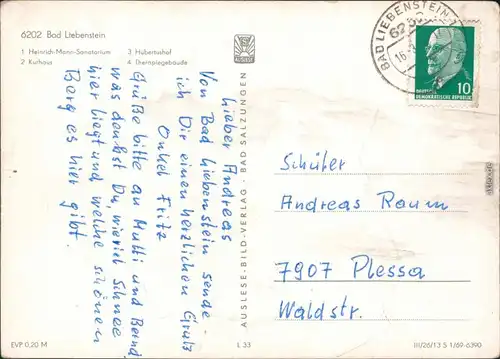 6202 Bad Liebenstein
1 Heinrich-Mann-Sanatorium
2 Kurhaus
3 Hubertushof
4 Therapiegebäude
lieber Andreas
Von Bad Liebenstein sende
ich Dir einen herzlichen Gruß
Onkel Fritz
Grüße bitte an Mutti und Bernd
was denkst Du, wieviel Schnee
hier liegt und welche schönen
Berg es hier gibt.
AUSLESE-BILD-VERLAG · BAD SALZUNGEN
BAD LIEBENSTEIN
DEUTSCHE
DEMOKRATISCHE REPUBLIK
10
Schüler
Andreas Raum
7907 Plessa
Waldstr.
EVP 0,20 M
L 33
III/26/13 S 1/69-6390